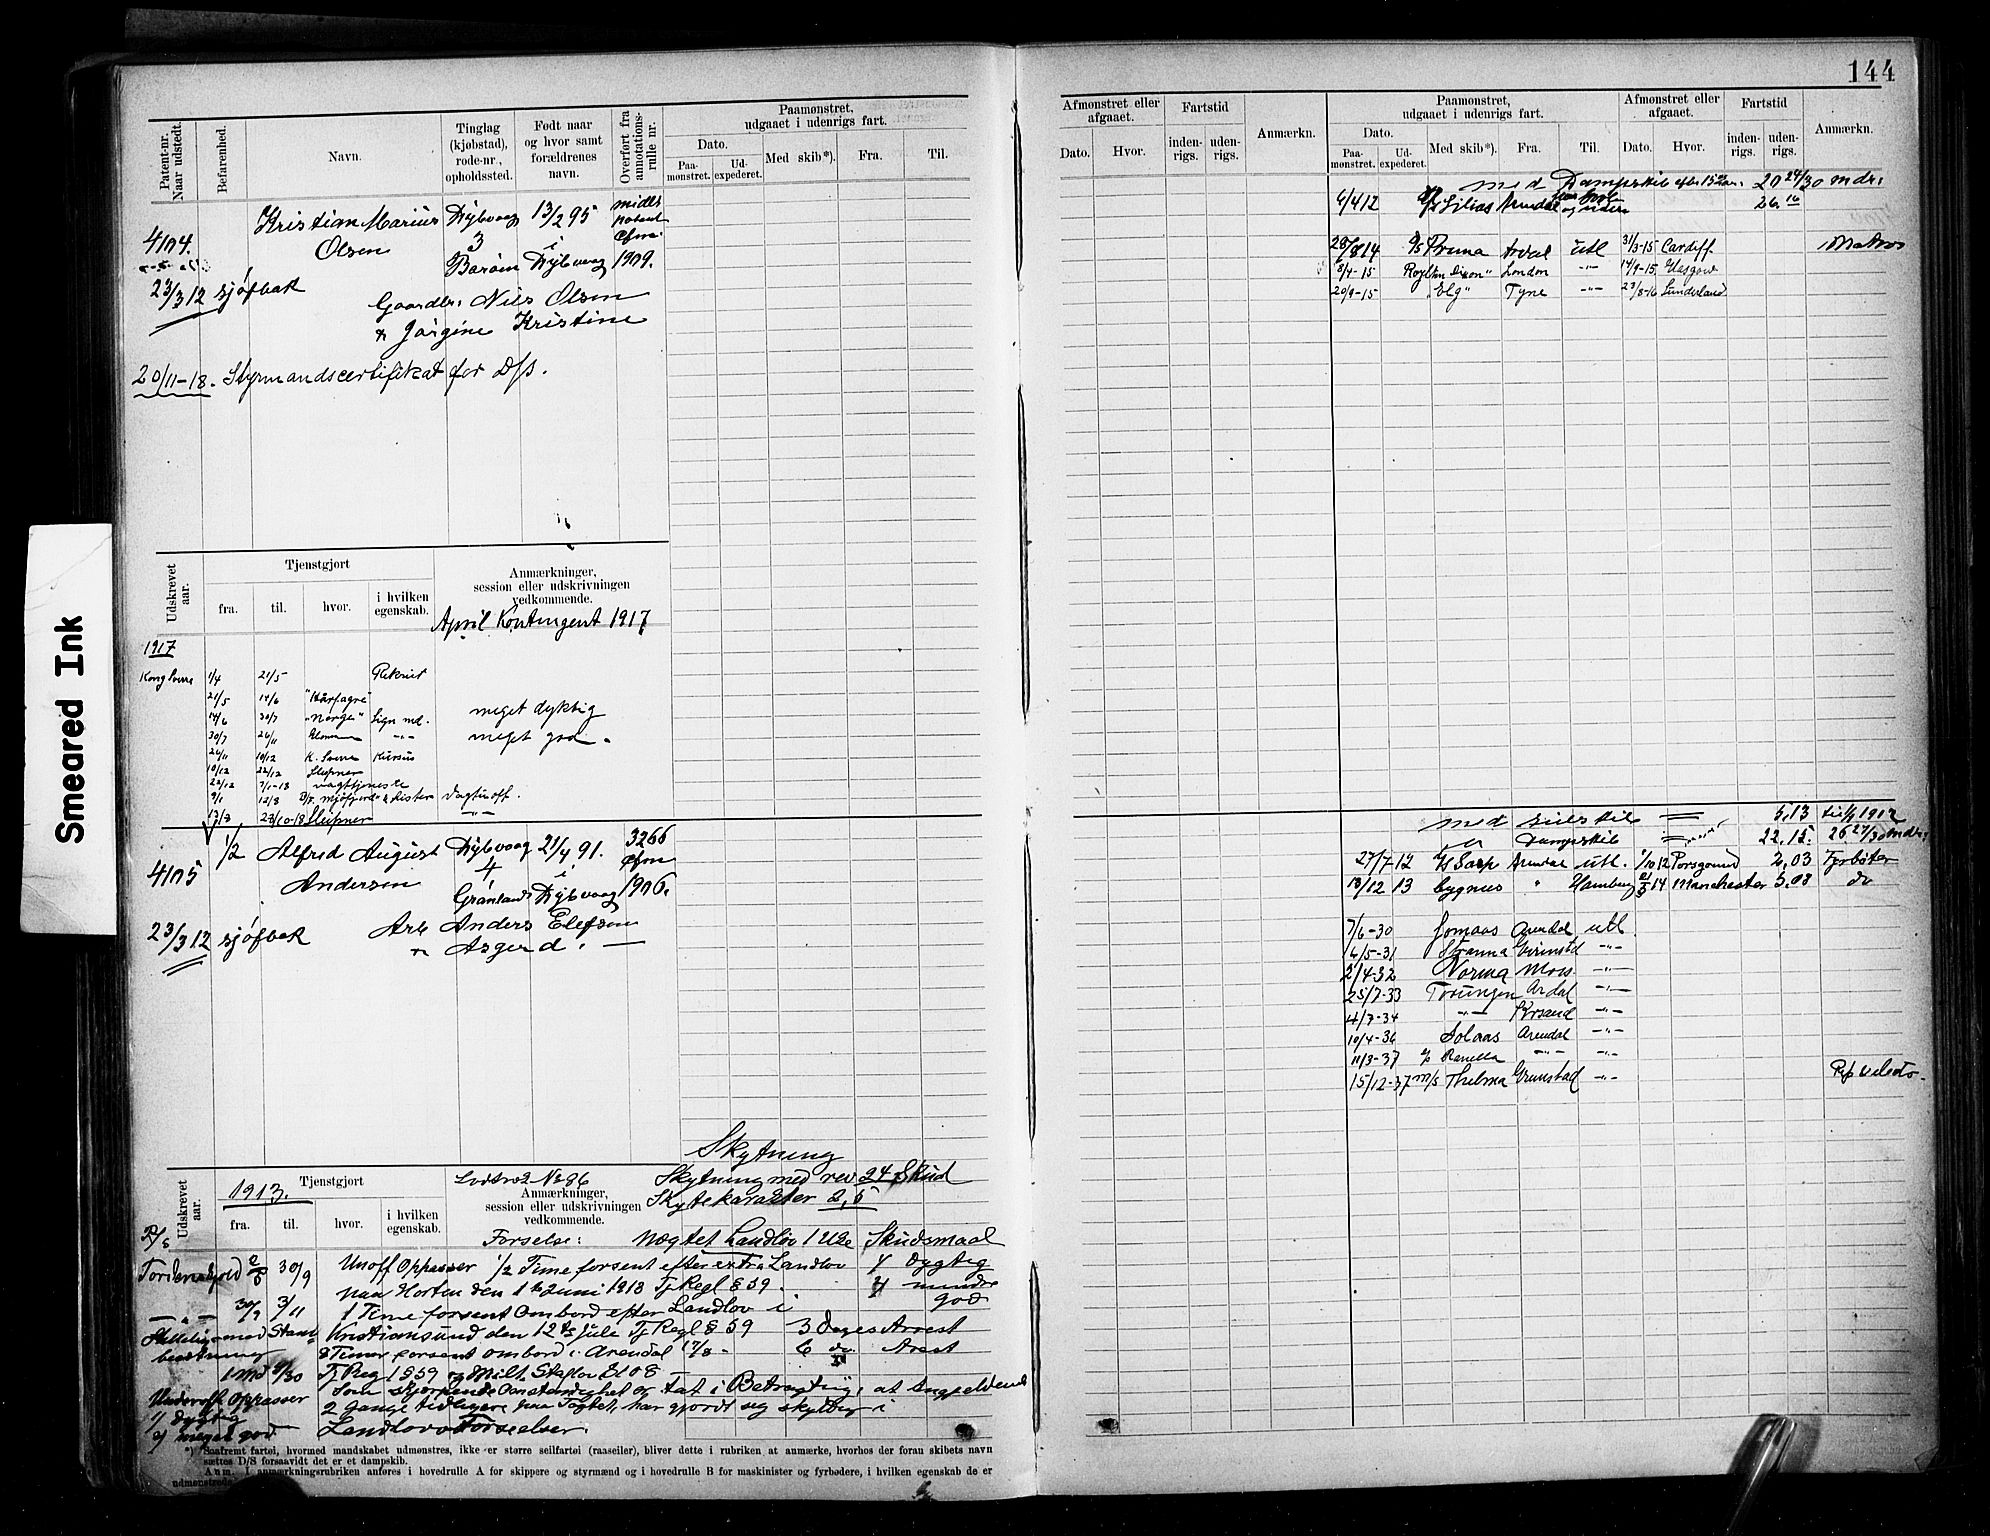 144
Smeared Ink
Patent-nr. Naar udstedt.
Befarenhed.
Navn.
Tinglag (kjøbstad), rode-nr., opholdssted.
Født naar og hvor samt forældrenes navn.
Overført fra annotations-rulle nr.
Paamønstret, udgaaet i udenrigs fart.
Dato.
Paa-mønstret.
Ud-expederet.
Med skib*).
Fra.
Til.
4104.
Kristian Marius Olsen
Dybvaag
3
Barøm
13/2 95
i
Dybvaag
midl.
patent
1909.
23/3 12 sjøfbar
Gaardbr: Niels Olsen
& Jørgine Kristine
20/11-18. Styrmandscertifikat for D/S.
Udskrevet aar.
Tjenstgjort
fra.
til.
hvor.
i hvilken egenskab.
Anmærkninger, session eller udskrivningen vedkommende.
April Kontingent 1917
1917
Kong Sverre 1/4 21/5 Rekrut
21/5 14/6 "Hårfagre"
14/6 30/7 "Norge" Sign md. meget dyktig
30/7 26/11 -"- meget god.
26/11 10/12 K. Sverre Kursus
10/12 22/12 Sleipner
22/12 7/1-18 vagttjeneste
9/1 12/3
13/3 23/10-18 Sleipner -"-
4105
1/2
Alfred August Andersen
Dybvaag
4
Grønland
21/4 91.
i
Dybvaag
3266
1906.
23/3 12 sjøfbar
Arb Anders Elefsen
& Asgerd. —
Skytning
Skytning med rev 24 Skud
Skytekarakter 2,5
Udskrevet aar.
Tjenstgjort
1913.
fra.
til.
hvor.
i hvilken egenskab.
No 86
Anmærkninger, session eller udskrivningen vedkommende.
Forseelse: Nægtet Landlov 1 Uge Skudsmaal
Tordenskjold 2/5 30/9 Unoff Oppasser 1/2 Time forsent efter extra Landlov 1/ dygtig
paa Horten den 1ste Juni 1913 Tj Regl § 59. 2/ mindre god
— " — 30/9 3/11 1 Time forsent ombord efter Landlov i
med Stam- Kristiansund den 12te Juli Tj Regl § 59 3 Dages Arrest
besætning 8 Timer forsent ombord i Arendal 17/8 - 6 do Arest
1 Md 4/30 Tj Regl § 59 og Milit. Straflov § 108 —
Underoff Oppasser Som skjærpende Omstændighet er tat i Betragtning, at angjeldende
1/ dygtig 2 Gange tidligere paa Togtet har gjort sig skyldig i
2/ meget god Landlovs Forseelser.
*) Saafremt fartøi, hvormed mandskabet udmønstres, ikke er større seilfartøi (raaseiler), bliver dette i rubriken at anmærke, hvorhos der foran skibets navn
sættes D/S forsaavidt det er et dampskib.
Anm. I anmærkningsrubriken anføres i hovedrulle A for skippere og styrmænd og i hovedrulle B for maskinister og fyrbødere, i hvilken egenskab de er
udmønstrede.
Afmønstret eller afgaaet.
Dato.
Hvor.
Fartstid
inden-rigs.
uden-rigs.
Anmærkn.
Paamønstret, udgaaet i udenrigs fart.
Dato.
Paa-mønstret.
Ud-expederet.
Med skib*).
Fra.
Til.
Afmønstret eller afgaaet.
Dato.
Hvor.
Fartstid
inden-rigs.
uden-rigs.
Anmærkn.
med Dampskib efter 15 aar: 20 24/30 mdr:
6/4 12 Silias Arendal 26.16
28/8 14 D/S Pruma Ardal utl 31/3-15 Cardiff Matros
8/4-15 London -"- 14/9-15 Glasgow
20/9-15 "Elg" Tyne -"- 23/8-16 Sunderland
med seilskib = 5,13 til 1/1 1912
" Dampskib = 22,15. 26 27/30 mdr:
27/7-12 D/S Sarp Arendal utl. 1/10 12 Porsgrund 2,03 Fyrbøter
18/12 13 Cygnus " Hamburg 21/5 14 Manchester 5,03 do
7/6-30 Jomaas Arendal utl
6/5-31 Stranna Grimstd -"-
2/4-32 Norma Moss -"-
25/7-33 Torungen Ardal -"-
4/7-34 -"- Krsand -"-
10/4-36 Solaas Arendal -"-
11/3-37 Ranella -"- -"-
15/12-37 M/S Thelma Grimstad -"-